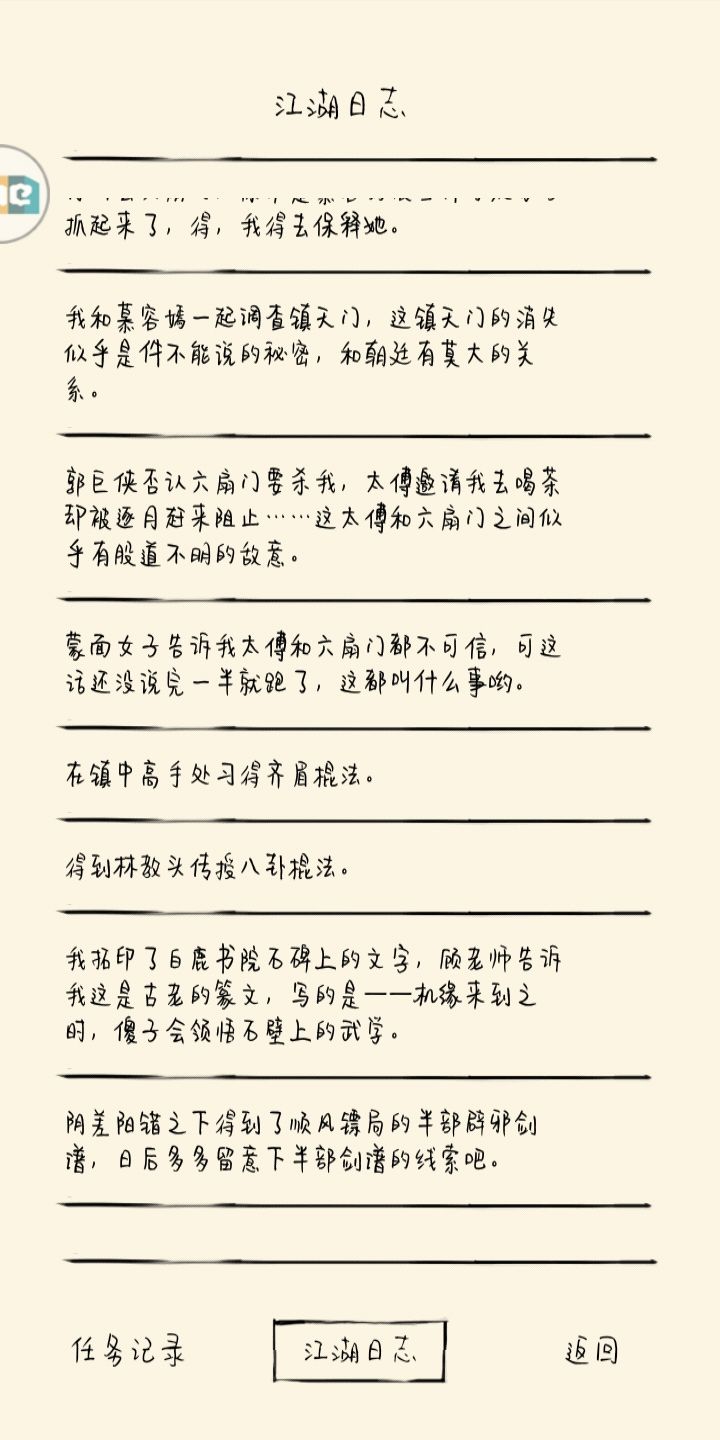 江湖日志
抓起来了，得，我得去保释她。
我和慕容嫣一起调查镇天门，这镇天门的消失
似乎是件不能说的秘密，和朝廷有莫大的关
系。
郭巨侠否认六扇门要杀我，太傅邀请我去喝茶
却被逐月赶来阻止……这太傅和六扇门之间似
乎有股道不明的敌意。
蒙面女子告诉我太傅和六扇门都不可信，可这
话还没说完一半就跑了，这都叫什么事哟。
在镇中高手处习得齐眉棍法。
得到林教头传授八卦棍法。
我拓印了白鹿书院石碑上的文字，顾老师告诉
我这是古老的篆文，写的是——机缘来到之
时，傻子会领悟石壁上的武学。
阴差阳错之下得到了顺风镖局的半部辟邪剑
谱，日后多多留意下半部剑谱的线索吧。
任务记录
江湖日志
返回